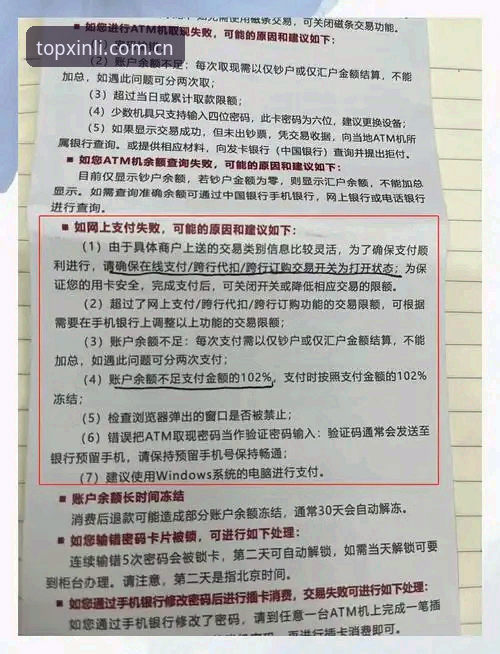 需使用磁条交易，可关闭磁条交易功能。
■ 如您进行ATM机取现失败，可能的原因和建议如下：
topxinli.com.cn
（2）账户余额不足：每次取现需以仅钞户或仅汇户金额结算，不能
加总，如遇此问题可分两次取；
（3）超过当日或累计取款限额；
（4）少数机具只支持输入四位密码，此卡密码为六位，建议更换设备；
（5）如果显示交易成功，但未出钞票，凭交易收据，向当地ATM机所
属银行查询。或提供相应材料，向发卡银行（中国银行）查询并提出拒付。
■ 如您ATM机余额查询失败，可能的原因和建议如下：
目前仅显示钞户余额，若钞户金额为零，则显示汇户余额，不能加总
显示。如需查询准确余额可通过中国银行手机银行，网上银行或电话银行
进行查询。
■ 如网上支付失败，可能的原因和建议如下：
（1）由于具体商户上送的交易类别信息比较灵活，为了确保支付顺
利进行，请确保在线支付/跨行代扣/跨行订购交易开关为打开状态；为保
证您的用卡安全，完成支付后，可关闭开关或降低相应交易的限额。
（2）超过了网上支付/跨行代扣/跨行订购功能的交易限额，可根据
需要在手机银行上调整以上功能的交易限额；
（3）账户余额不足：每次支付需以仅钞户或仅汇户金额结算，不能
加总，如遇此问题可分两次支付；
（4）账户余额不足支付金额的102%，支付时按照支付金额的102%
冻结；
（5）检查浏览器弹出的窗口是否被禁止；
（6）错误把ATM取现密码当作验证密码输入：验证码通常会发送至
银行预留手机，请保持预留手机号保持畅通；
（7）建议使用Windows系统的电脑进行支付。
■ 账户余额长时间冻结
消费后退款可能造成部分账户余额冻结，通常30天会自动解冻。
■ 如您输错密码卡片被锁，可进行如下处理：
连续输错5次密码会被锁卡，第二天可自动解锁，如需当天解锁可要
到柜台办理。请注意，第二天是指北京时间。
■ 如您通过手机银行修改密码后进行插卡消费，交易失败可进行如下处理：
如您通过手机银行修改了密码，请到任意一台ATM机上完成一笔插
再进行插卡消费即可。